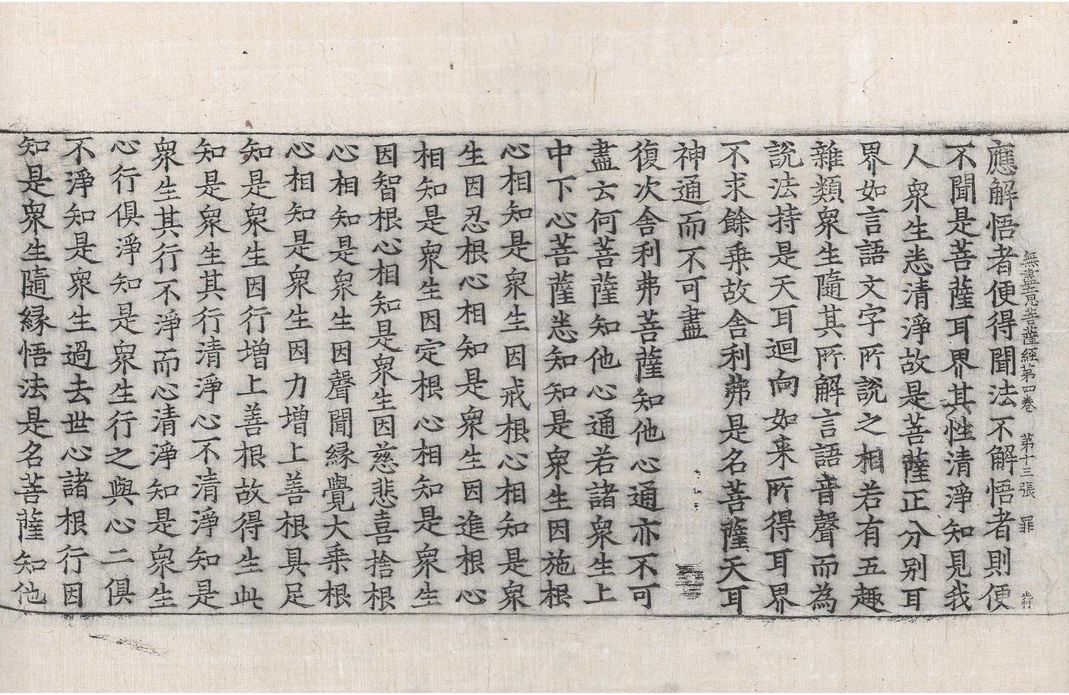 無盡意菩薩經第四卷 第十三張 罪
應解悟者便得聞法不解悟者則便
不聞是菩薩耳界其性清淨知見我
人衆生悉清淨故是菩薩正分别耳
界如言語文字所說之相若有五趣
雜類衆生隨其所解言語音聲而為
說法持是天耳迴向如来所得耳界
不求餘乗故舎利弗是名菩薩天耳
神通而不可盡
復次舎利弗菩薩知他心通亦不可
盡云何菩薩知他心通若諸衆生上
中下心菩薩悉知知是衆生因施根
心相知是衆生因戒根心相知是衆
生因忍根心相知是衆生因進根心
相知是衆生因定根心相知是衆生
因智根心相知是衆生因慈悲喜捨根
心相知是衆生因聲聞縁覺大乗根
心相知是衆生因力增上善根具足
知是衆生因行増上善根故得生此
知是衆生其行清淨心不清淨知是
衆生其行不淨而心清淨知是衆生
心行俱淨知是衆生行之與心二俱
不淨知是衆生過去世心諸根行因
知是衆生隨縁悟法是名菩薩知他